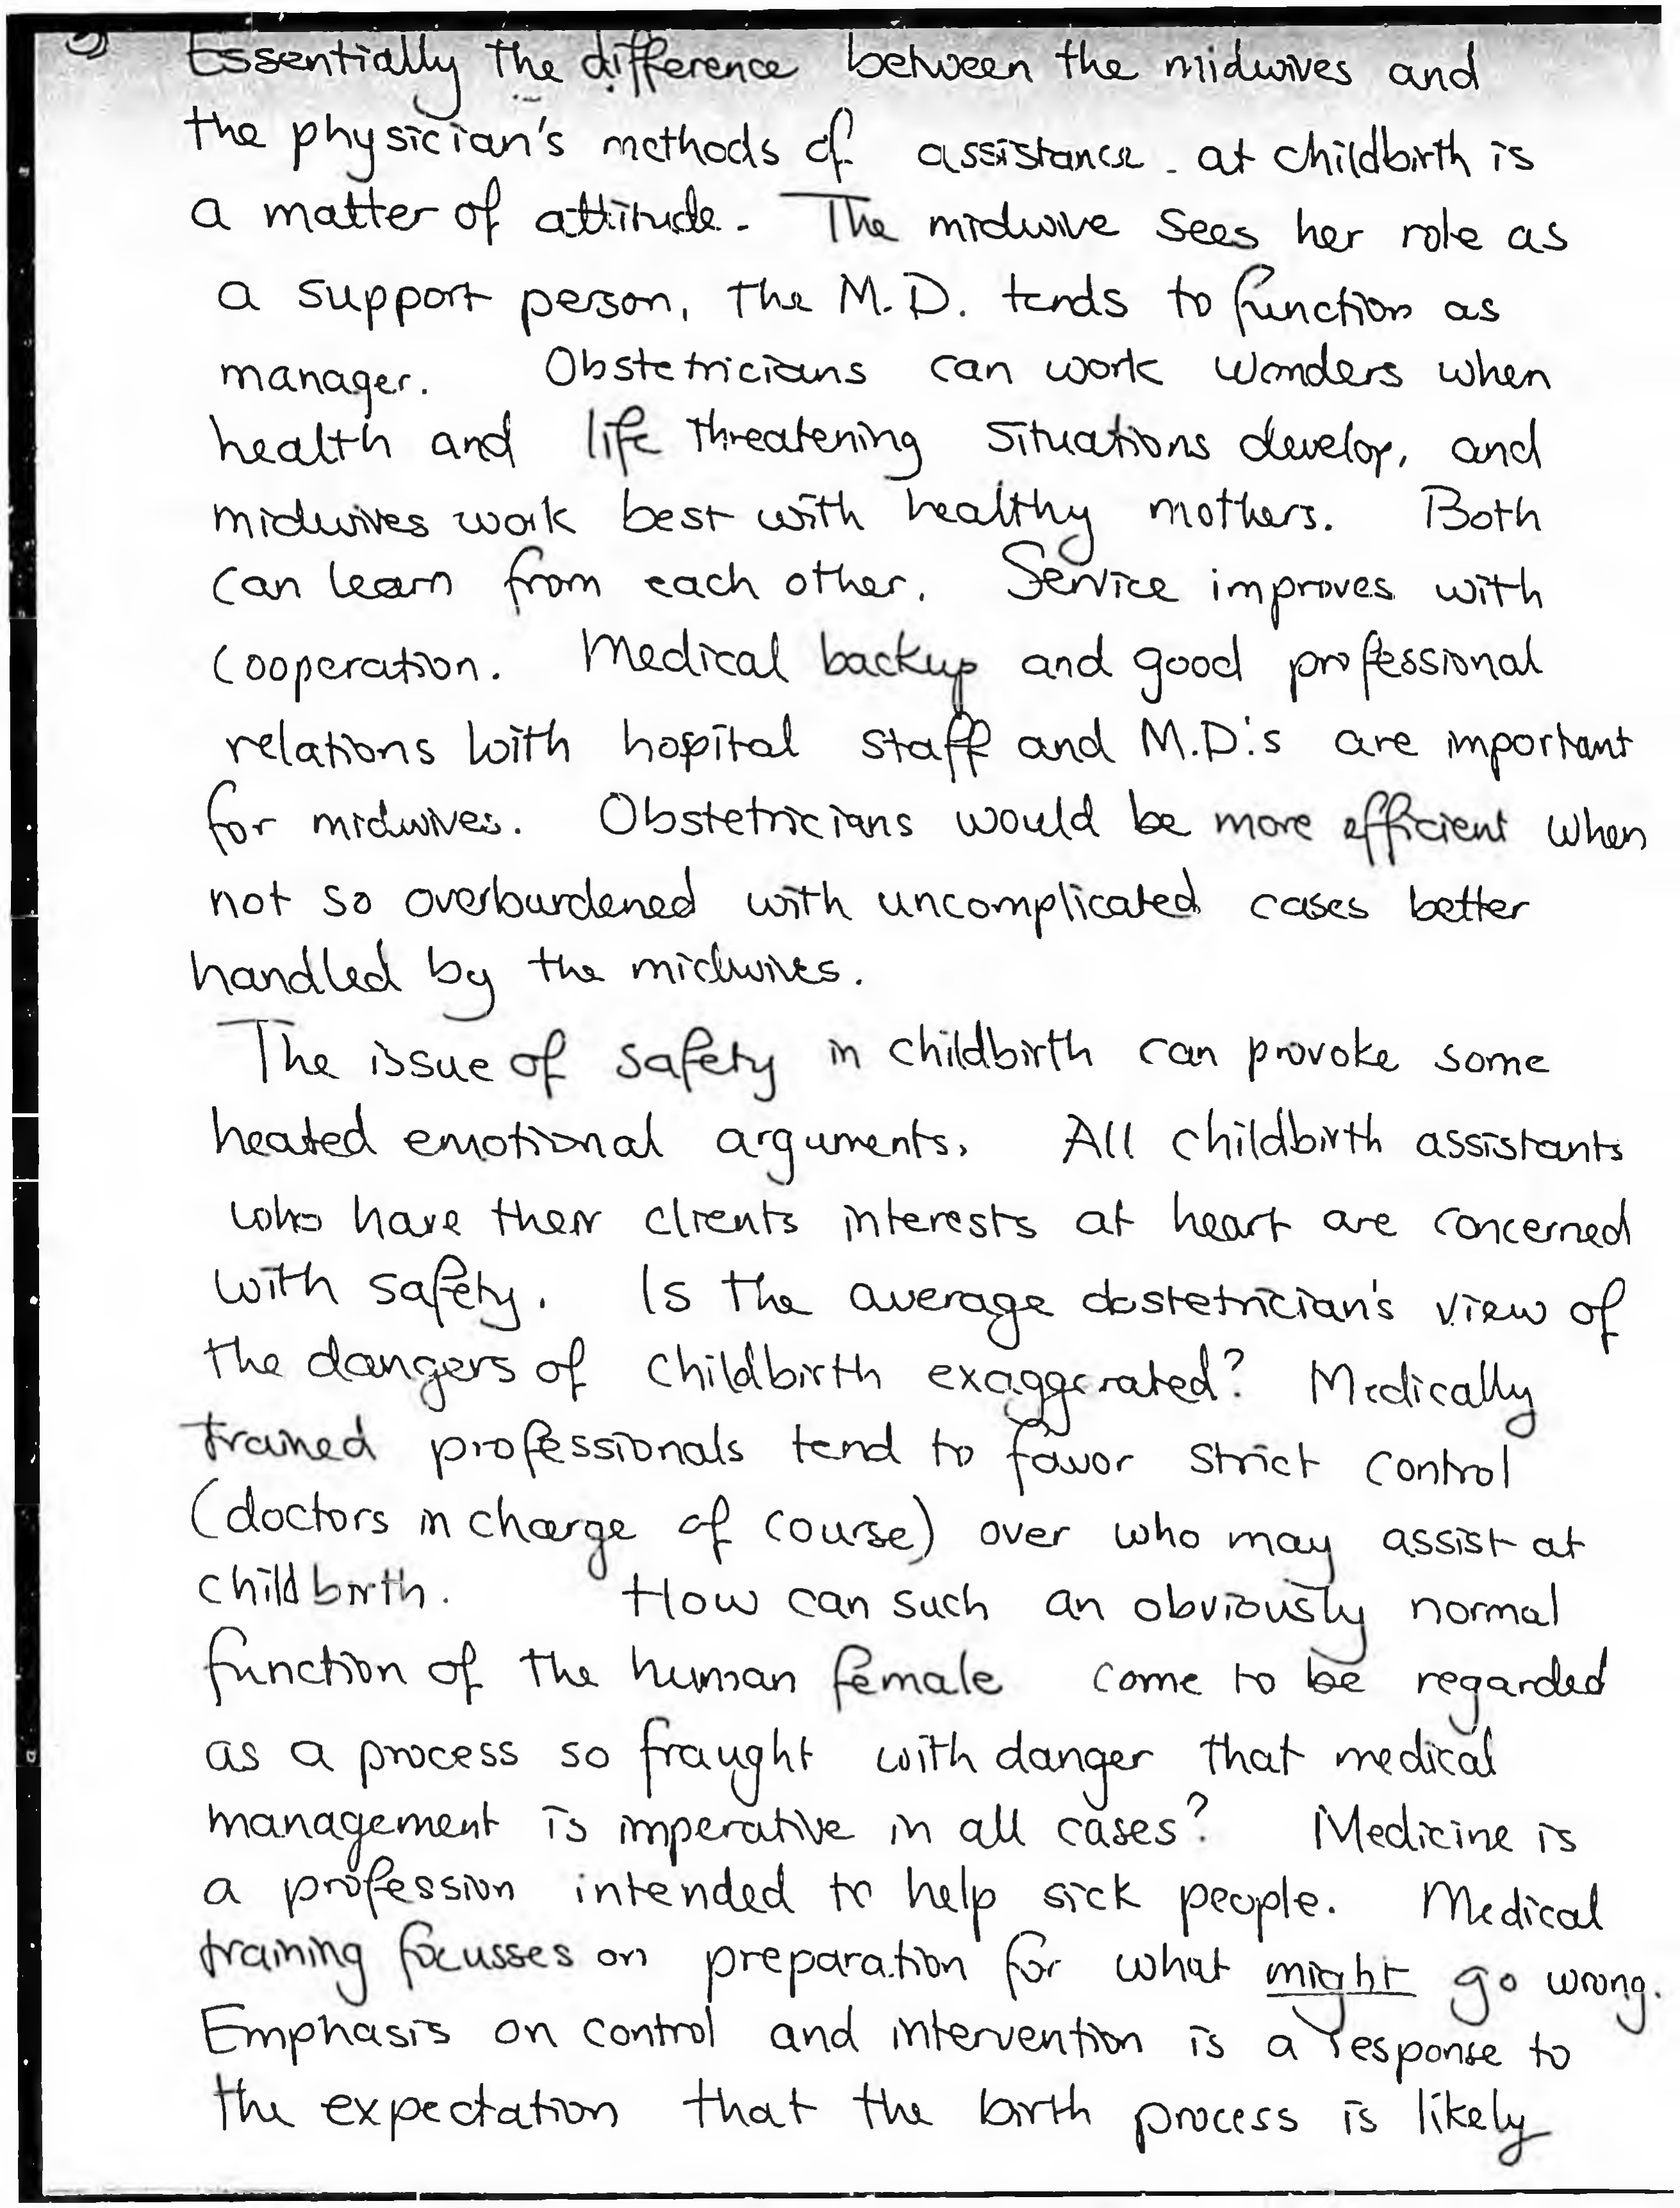 Essentially the difference between the midwives and
the physician's methods of assistance at childbirth is
a matter of attitude. The midwive sees her role as
a support person, the M.D. tends to function as
manager. Obstetricians can work wonders when
health and life threatening situations develop, and
midwives work best with healthy mothers. Both
can learn from each other. Service improves with
cooperation. Medical backup and good professional
relations with hopital staff and M.D.'s are important
for midwives. Obstetricians would be more efficient when
not so overburdened with uncomplicated cases better
handled by the midwives.
The issue of safety in childbirth can provoke some
heated emotional arguments. All childbirth assistants
who have their clients interests at heart are concerned
with safety. Is the average obstetrician's view of
the dangers of childbirth exaggerated? Medically
trained professionals tend to favor strict control
(doctors in charge of course) over who may assist at
childbirth. How can such an obviously normal
function of the human female come to be regarded
as a process so fraught with danger that medical
management is imperative in all cases? Medicine is
a profession intended to help sick people. Medical
training focusses on preparation for what might go wrong.
Emphasis on control and intervention is a response to
the expectation that the birth process is likely